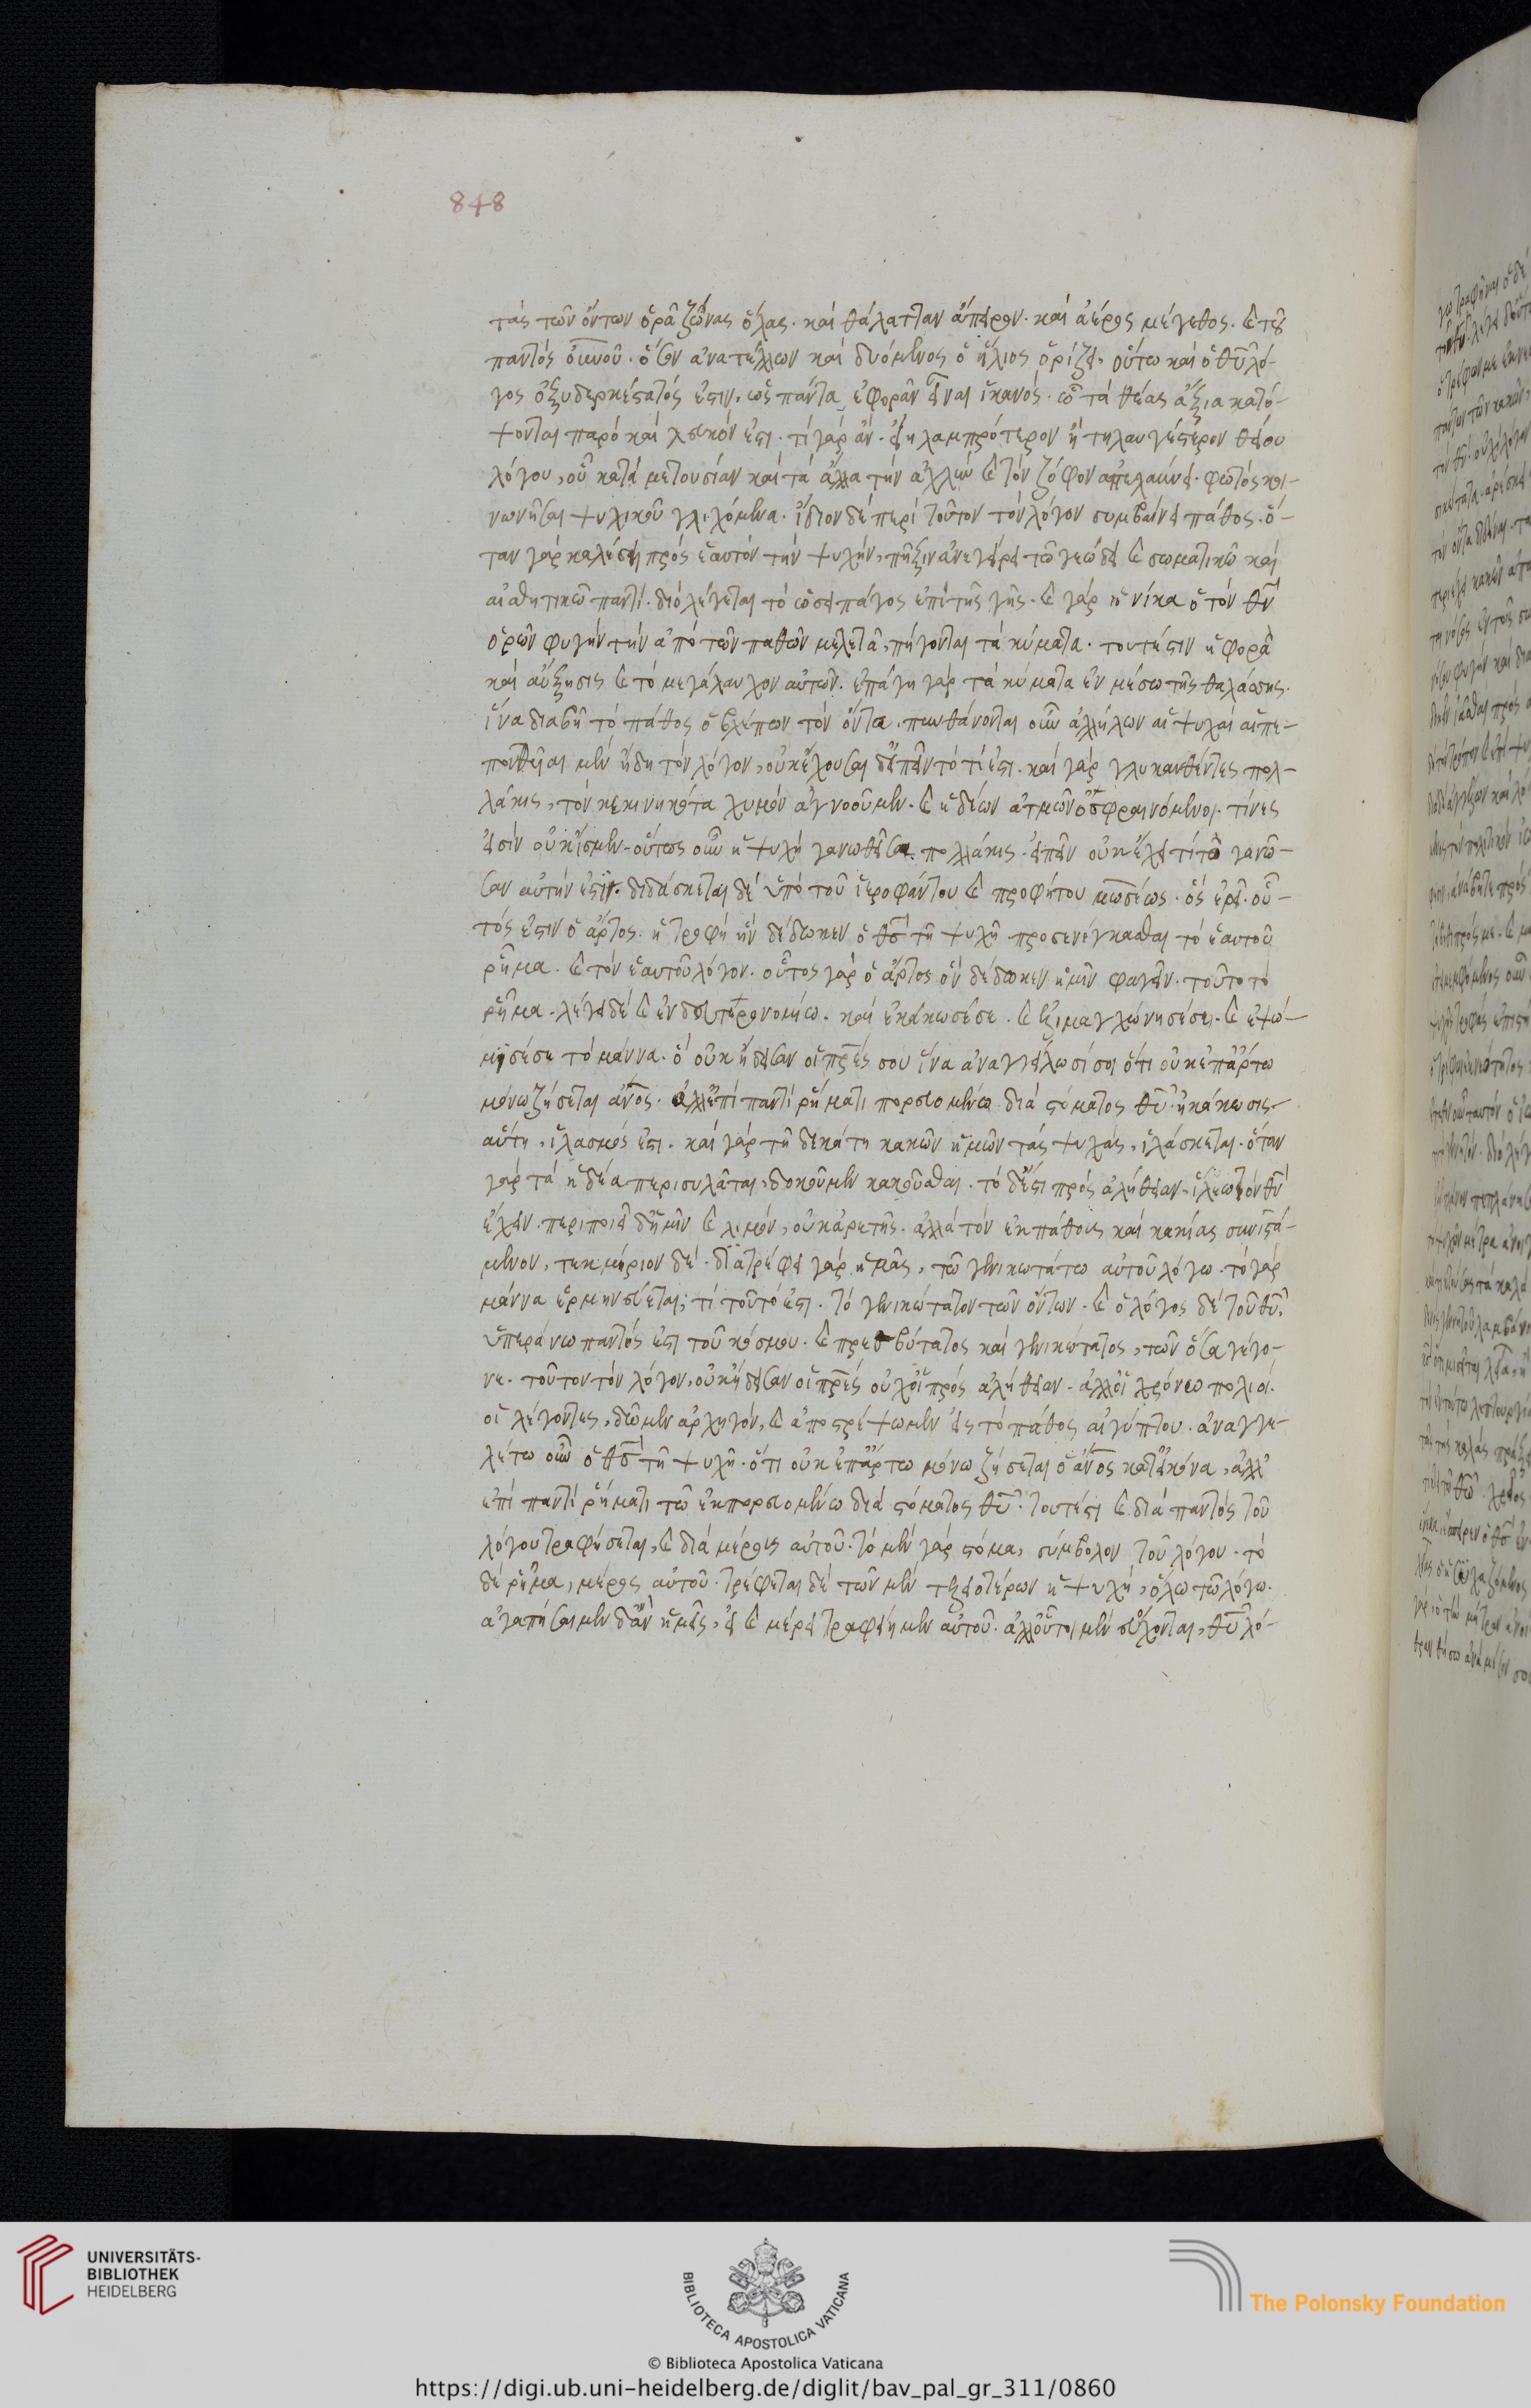 848
τὰς τῶν ὄντων ὁρᾷ ζώνας ὅλας. καὶ θάλατταν ἄπειρον. καὶ ἀέρος μέγεθος. καὶ τοῦ
παντὸς οὐνοῦ. ὅσον ἀνατέλλων καὶ δυόμενος ὁ ἥλιος ὁρίζει. οὕτω καὶ ὁ θυ λό-
γος ὀξυδερκέστατός ἐστιν, ὡς πάντα ἐφορᾶν εἶναι ἱκανός. ᾧ τὰ θέας ἄξια κατό-
ψονται παρὸ καὶ λευκόν ἐστι. τί γὰρ ἂν εἴη λαμπρότερον ἢ τηλαυγέστερον θείου
λόγου, οὗ κατὰ μετουσίαν καὶ τὰ ἄλλα τὴν ἀχλὺν καὶ τὸν ζόφον ἀπελαύνει. φωτὸς κοι-
νωνῆσαι ψυχικοῦ γλιχόμενα. ἴδιον δὲ περὶ τοῦτον τὸν λόγον συμβαίνει πάθος. ὅ-
ταν γὰρ καλέσῃ πρὸς ἑαυτὸν τὴν ψυχὴν, πῆξιν ἀνεγείρει τῷ γεώδει καὶ σωματικῷ καὶ
αἰσθητικῷ παντί. διὸ λέγεται τὸ ὡσεὶ πάγος ἐπὶ τῆς γῆς. καὶ γὰρ ἡνίκα ὁ τὸν θν
ὁρῶν φυγὴν τὴν ἀπὸ τῶν παθῶν μελετᾷ, πήγονται τὰ κύματα. τουτέστιν ἡ φορὰ
καὶ αὔξησις καὶ τὸ μεγάλαυχον αὐτῶν. ἐπάγη γὰρ τὰ κύματα ἐν μέσῳ τῆς θαλάσσης.
ἵνα διαβῇ τὸ πάθος ὁ βλέπων τὸν ὄντα. πυνθάνονται οὖν ἀλλήλων αἱ ψυχαὶ αἱ πε-
πονθυῖαι μὲν ἤδη τὸν λόγον, οὐκ ἔχουσαι δ' εἰπεῖν τὸ τί ἐστι. καὶ γὰρ γλυκανθέντες πολ-
λάκις, τὸν κεκινηκότα χυμὸν ἀγνοοῦμεν. καὶ ἡδέων ἀτμῶν ὀσφραινόμενοι. τίνες
εἰσὶν οὐκ ἴσμεν. οὕτως οὖν ἡ ψυχὴ γανωθεῖσα πολλάκις. εἰπεῖν οὐκ ἔχει τί τὸ γανῶ-
σαν αὐτήν ἐστιν. διδάσκεται δὲ ὑπὸ τοῦ ἱεροφάντου καὶ προφήτου μωσέως. ὃς ἐρεῖ. οὗ-
τός ἐστιν ὁ ἄρτος. ἡ τροφὴ ἣν δέδωκεν ὁ θς τῇ ψυχῇ. προσενέγκασθαι τὸ ἑαυτοῦ
ῥῆμα. καὶ τὸν ἑαυτοῦ λόγον. οὗτος γὰρ ὁ ἄρτος ὃν δέδωκεν ἡμῖν φαγεῖν. τοῦτο τὸ
ῥῆμα. λέγει δὲ καὶ ἐν δευτερονομίῳ. καὶ ἐκάκωσέ σε. καὶ ἐλιμαγχόνησέ σε. καὶ ἐψώ-
μισέ σε τὸ μάννα. ὃ οὐκ ᾔδεισαν οἱ πρές σου ἵνα ἀναγγείλωσί σοι ὅτι οὐκ ἐπ' ἄρτῳ
μόνῳ ζήσεται ἄνος. ἀλλ' ἐπὶ παντὶ ῥήματι πορευομένῳ διὰ στόματος θυ. ἡ κάκωσις
αὕτη, ἱλασμός ἐστι. καὶ γὰρ τῇ δεκάτῃ κακῶν ἡμῶν τὰς ψυχὰς, ἱλάσκεται. ὅταν
γὰρ τὰ ἡδέα περισυλᾶται, δοκοῦμεν κακοῦσθαι. τὸ δ' ἔστι πρὸς ἀλήθειαν, ἵλεω τὸν θν
ἔχειν. περιποιεῖ δ' ἡμῖν καὶ λιμὸν, οὐκ ἀρετῆς. ἀλλὰ τὸν ἐκ πάθους καὶ κακίας συνιστά-
μενον, τεκμήριον δέ. διατρέφει γὰρ ἡμᾶς, τῷ γενικωτάτῳ αὐτοῦ λόγῳ. τὸ γὰρ
μάννα ἑρμηνεύεται, τί τοῦτό ἐστι. τὸ γενικώτατον τῶν ὄντων. καὶ ὁ λόγος δὲ τοῦ θυ,
ὑπεράνω παντός ἐστι τοῦ κόσμου. καὶ πρεσβύτατος καὶ γενικώτατος, τῶν ὅσα γέγο-
νε. τοῦτον τὸν λόγον, οὐκ ᾔδεισαν οἱ πρές οὐχ οἱ πρὸς ἀλήθειαν. ἀλλ' οἱ χρόνῳ πολιοί.
οἱ λέγοντες, δῶμεν ἀρχηγὸν, καὶ ἀποστρέψωμεν εἰς τὸ πάθος αἰγύπτου. ἀναγγε-
λέτω οὖν ὁ θς τῇ ψυχῇ. ὅτι οὐκ ἐπ' ἄρτῳ μόνῳ ζήσεται ὁ ἄνος κατ' εἰκόνα, ἀλλ'
ἐπὶ παντὶ ῥήματι τῷ ἐκπορευομένῳ διὰ στόματος θυ. τουτέστι καὶ διὰ παντὸς τοῦ
λόγου τραφήσεται, καὶ διὰ μέρους αὐτοῦ. τὸ μὲν γὰρ στόμα, σύμβολον τοῦ λόγου. τὸ
δὲ ῥῆμα, μέρος αὐτοῦ. τρέφεται δὲ τῶν μὲν τελειοτέρων ἡ ψυχὴ, ὅλῳ τῷ λόγῳ.
ἀγαπήσαιμεν δ' ἂν ἡμεῖς, εἰ καὶ μέρει τραφείημεν αὐτοῦ. ἀλλ' οὗτοι μὲν εὔχονται, θυ λό-
UNIVERSITÄTS-
BIBLIOTHEK
HEIDELBERG
BIBLIOTECA APOSTOLICA VATICANA
The Polonsky Foundation
© Biblioteca Apostolica Vaticana
https://digi.ub.uni-heidelberg.de/diglit/bav_pal_gr_311/0860